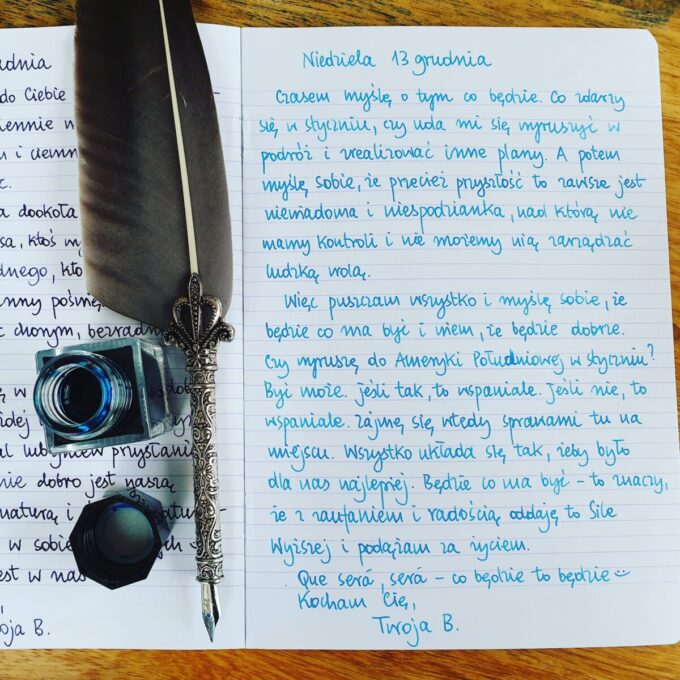 do Ciebie
iennie w
u i ciemn
a dookoła
dnego, kto
nny
c chonym, bezradn
w
idej
przystani
nie dobro jest naszą
naturą i
w sobie
est w nas
oja B.
Niedziela 13 grudnia
Czasem myślę o tym co będzie. Co zdarzy
się w styczniu, czy uda mi się wyruszyć w
podróż i zrealizować inne plany. A potem
myślę sobie, że przecież przyszłość to zawsze jest
niewiadoma i niespodzianka, nad którą nie
mamy kontroli i nie możemy nią zarządzać
ludzką wolą.
Więc puszczam wszystko i myślę sobie, że
będzie co ma być i wiem, że będzie dobrze.
Czy wyruszę do Ameryki Południowej w styczniu?
Być może. Jeśli tak, to wspaniale. Jeśli nie, to
wspaniale. Zajmę się wtedy sprawami tu na
miejscu. Wszystko układa się tak, żeby było
dla nas najlepiej. Będzie co ma być – to znaczy,
że z zaufaniem i radością oddaję to Sile
Wyższej i podążam za życiem.
Que será, será – co będzie to będzie :)
Kocham Cię,
Twoja B.